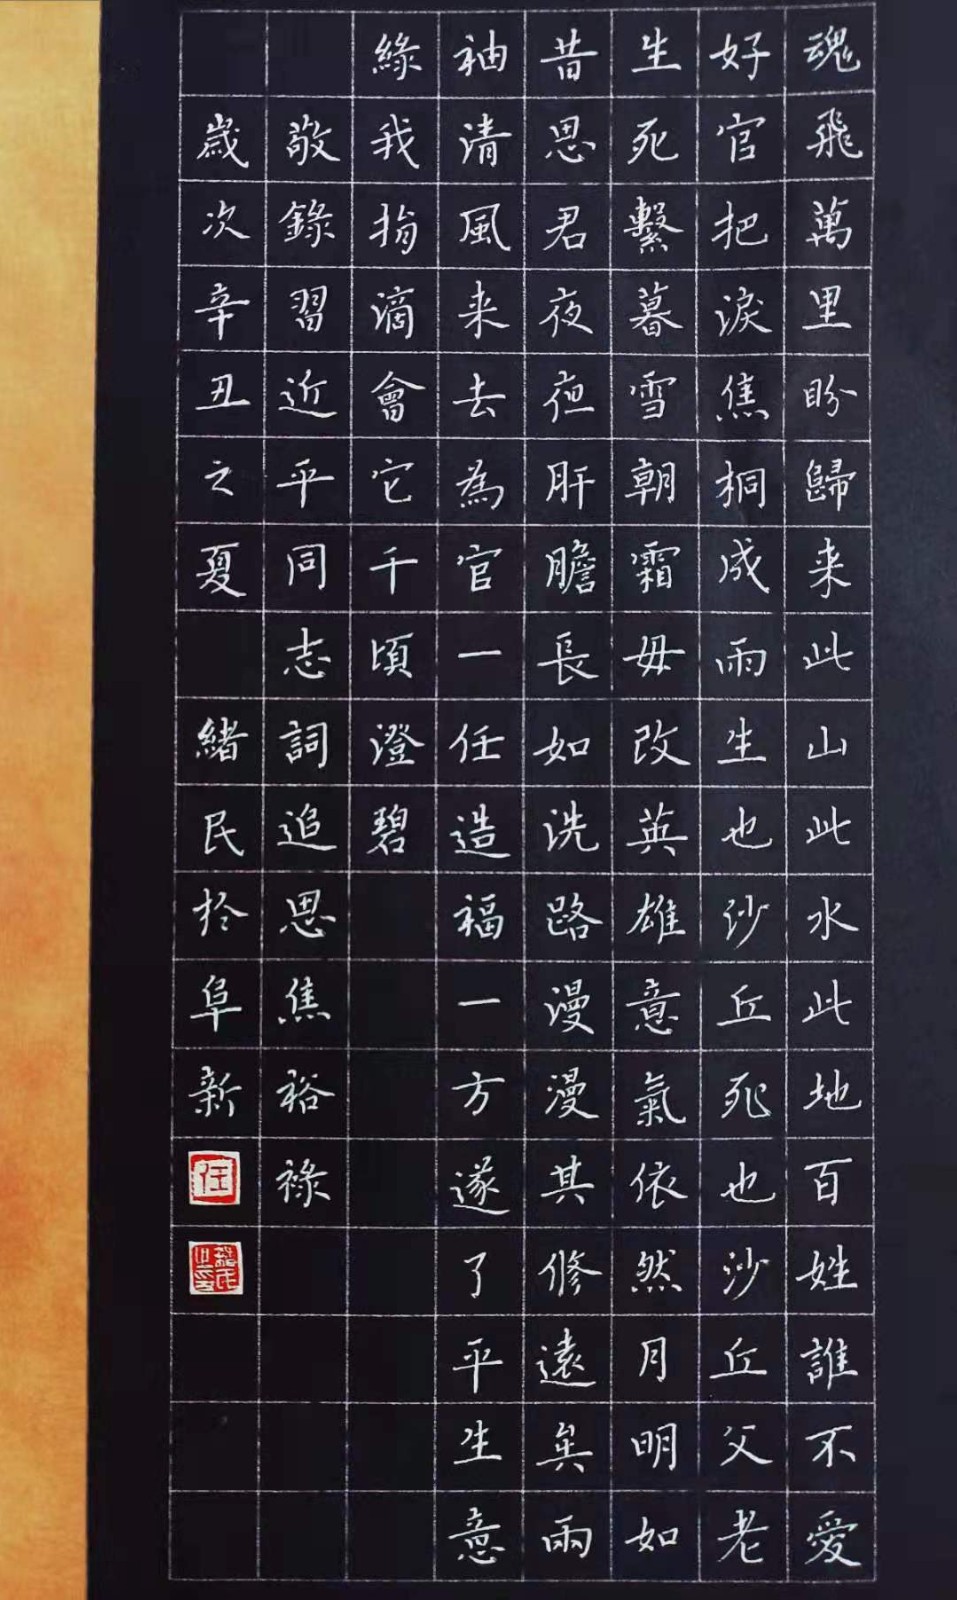 魂飛萬里盼歸来此山此水此地百姓誰不愛
好官把淚焦桐成雨生也沙丘死也沙丘父老
生死繫暮雪朝霜毋改英雄意氣依然月明如
昔思君夜夜肝膽長如洗路漫漫其修遠矣兩
袖清風来去為官一任造福一方遂了平生意
綠我涓滴會它千頃澄碧
敬錄習近平同志詞追思焦裕祿
歲次辛丑之夏 緒民於阜新
任